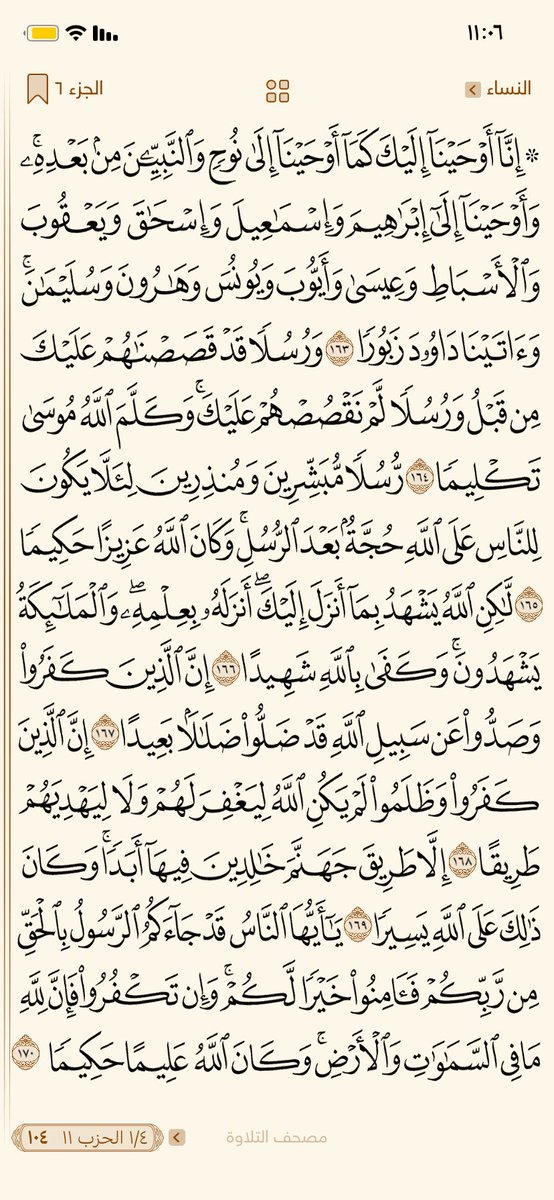 ١١:٠٦
النساء
الجزء ٦
۞ إِنَّآ أَوۡحَيۡنَآ إِلَيۡكَ كَمَآ أَوۡحَيۡنَآ إِلَىٰ نُوحٖ وَٱلنَّبِيِّـۧنَ مِنۢ بَعۡدِهِۦۚ
وَأَوۡحَيۡنَآ إِلَىٰٓ إِبۡرَٰهِيمَ وَإِسۡمَٰعِيلَ وَإِسۡحَٰقَ وَيَعۡقُوبَ
وَٱلۡأَسۡبَاطِ وَعِيسَىٰ وَأَيُّوبَ وَيُونُسَ وَهَٰرُونَ وَسُلَيۡمَٰنَۚ
وَءَاتَيۡنَا دَاوُۥدَ زَبُورٗا ١٦٣ وَرُسُلٗا قَدۡ قَصَصۡنَٰهُمۡ عَلَيۡكَ
مِن قَبۡلُ وَرُسُلٗا لَّمۡ نَقۡصُصۡهُمۡ عَلَيۡكَۚ وَكَلَّمَ ٱللَّهُ مُوسَىٰ
تَكۡلِيمٗا ١٦٤ رُّسُلٗا مُّبَشِّرِينَ وَمُنذِرِينَ لِئَلَّا يَكُونَ
لِلنَّاسِ عَلَى ٱللَّهِ حُجَّةُۢ بَعۡدَ ٱلرُّسُلِۚ وَكَانَ ٱللَّهُ عَزِيزًا حَكِيمٗا
١٦٥ لَّٰكِنِ ٱللَّهُ يَشۡهَدُ بِمَآ أَنزَلَ إِلَيۡكَۖ أَنزَلَهُۥ بِعِلۡمِهِۦۖ وَٱلۡمَلَٰٓئِكَةُ
يَشۡهَدُونَۚ وَكَفَىٰ بِٱللَّهِ شَهِيدًا ١٦٦ إِنَّ ٱلَّذِينَ كَفَرُواْ
وَصَدُّواْ عَن سَبِيلِ ٱللَّهِ قَدۡ ضَلُّواْ ضَلَٰلَۢا بَعِيدًا ١٦٧ إِنَّ ٱلَّذِينَ
كَفَرُواْ وَظَلَمُواْ لَمۡ يَكُنِ ٱللَّهُ لِيَغۡفِرَ لَهُمۡ وَلَا لِيَهۡدِيَهُمۡ
طَرِيقًا ١٦٨ إِلَّا طَرِيقَ جَهَنَّمَ خَٰلِدِينَ فِيهَآ أَبَدٗاۚ وَكَانَ
ذَٰلِكَ عَلَى ٱللَّهِ يَسِيرٗا ١٦٩ يَٰٓأَيُّهَا ٱلنَّاسُ قَدۡ جَآءَكُمُ ٱلرَّسُولُ بِٱلۡحَقِّ
مِن رَّبِّكُمۡ فَـَٔامِنُواْ خَيۡرٗا لَّكُمۡۚ وَإِن تَكۡفُرُواْ فَإِنَّ لِلَّهِ
مَا فِي ٱلسَّمَٰوَٰتِ وَٱلۡأَرۡضِۚ وَكَانَ ٱللَّهُ عَلِيمًا حَكِيمٗا ١٧٠
مصحف التلاوة
١/٤ الحزب ١١ ١٠٤